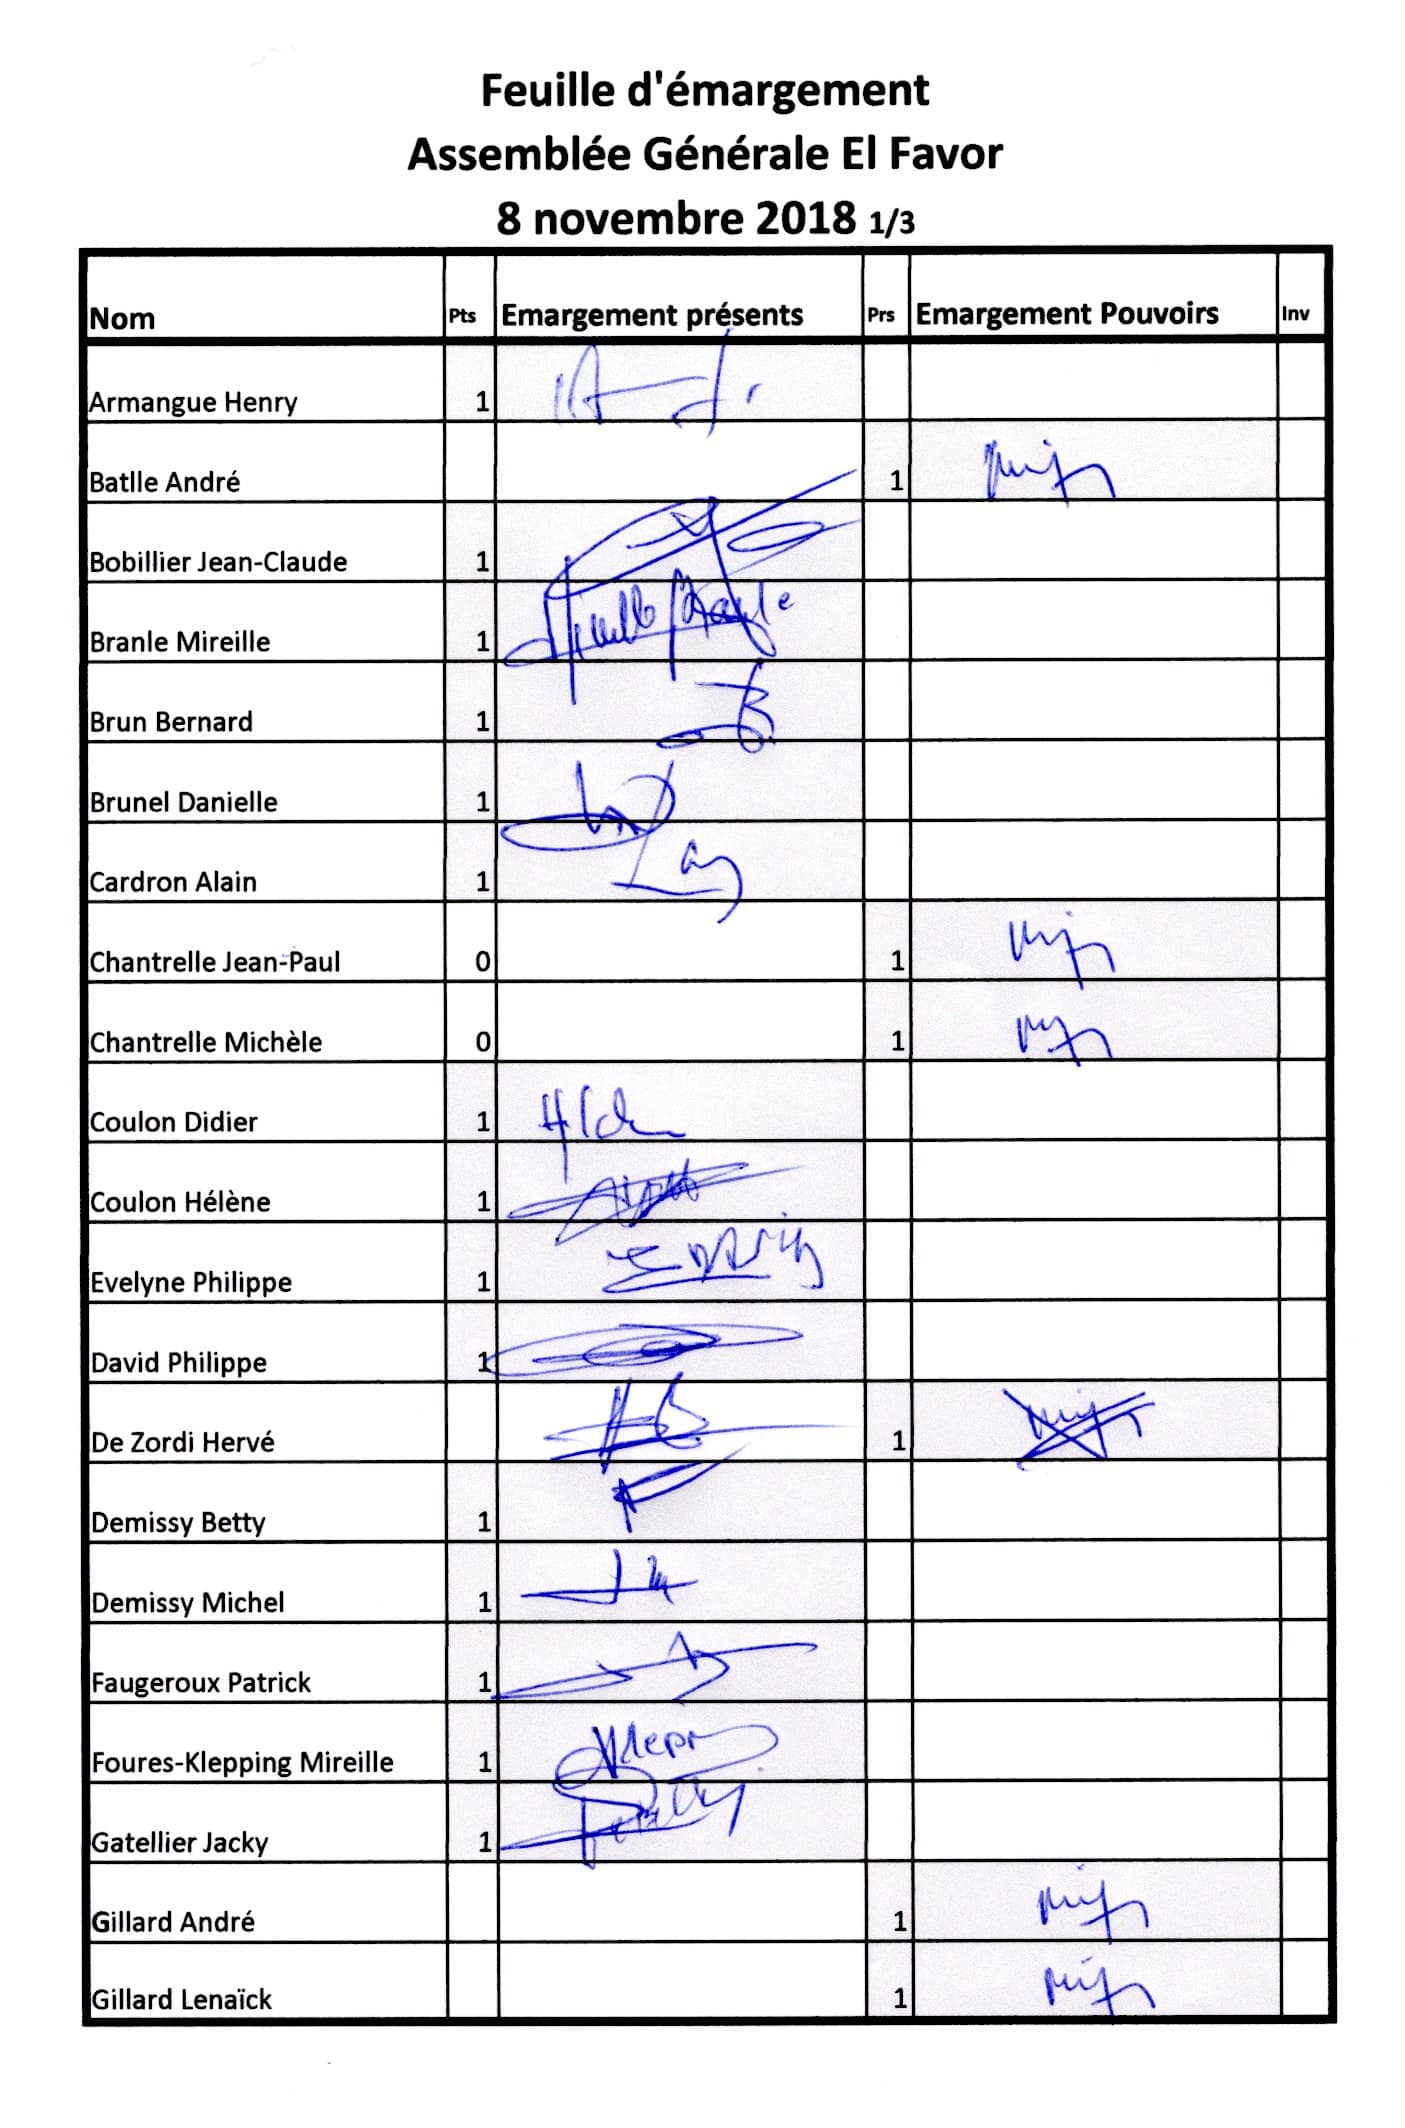 Feuille d'émargement
Assemblée Générale El Favor
8 novembre 2018 1/3
Nom Pts Emargement présents Prs Emargement Pouvoirs Inv
Armangue Henry 1
Batlle André 1
Bobillier Jean-Claude 1
Branle Mireille 1
Brun Bernard 1
Brunel Danielle 1
Cardron Alain 1
Chantrelle Jean-Paul 0 1
Chantrelle Michèle 0 1
Coulon Didier 1
Coulon Hélène 1
Evelyne Philippe 1
David Philippe 1
De Zordi Hervé 1
Demissy Betty 1
Demissy Michel 1
Faugeroux Patrick 1
Foures-Klepping Mireille 1
Gatellier Jacky 1
Gillard André 1
Gillard Lenaïck 1